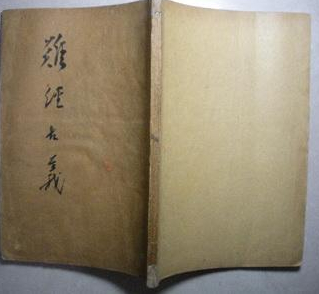 難經古義